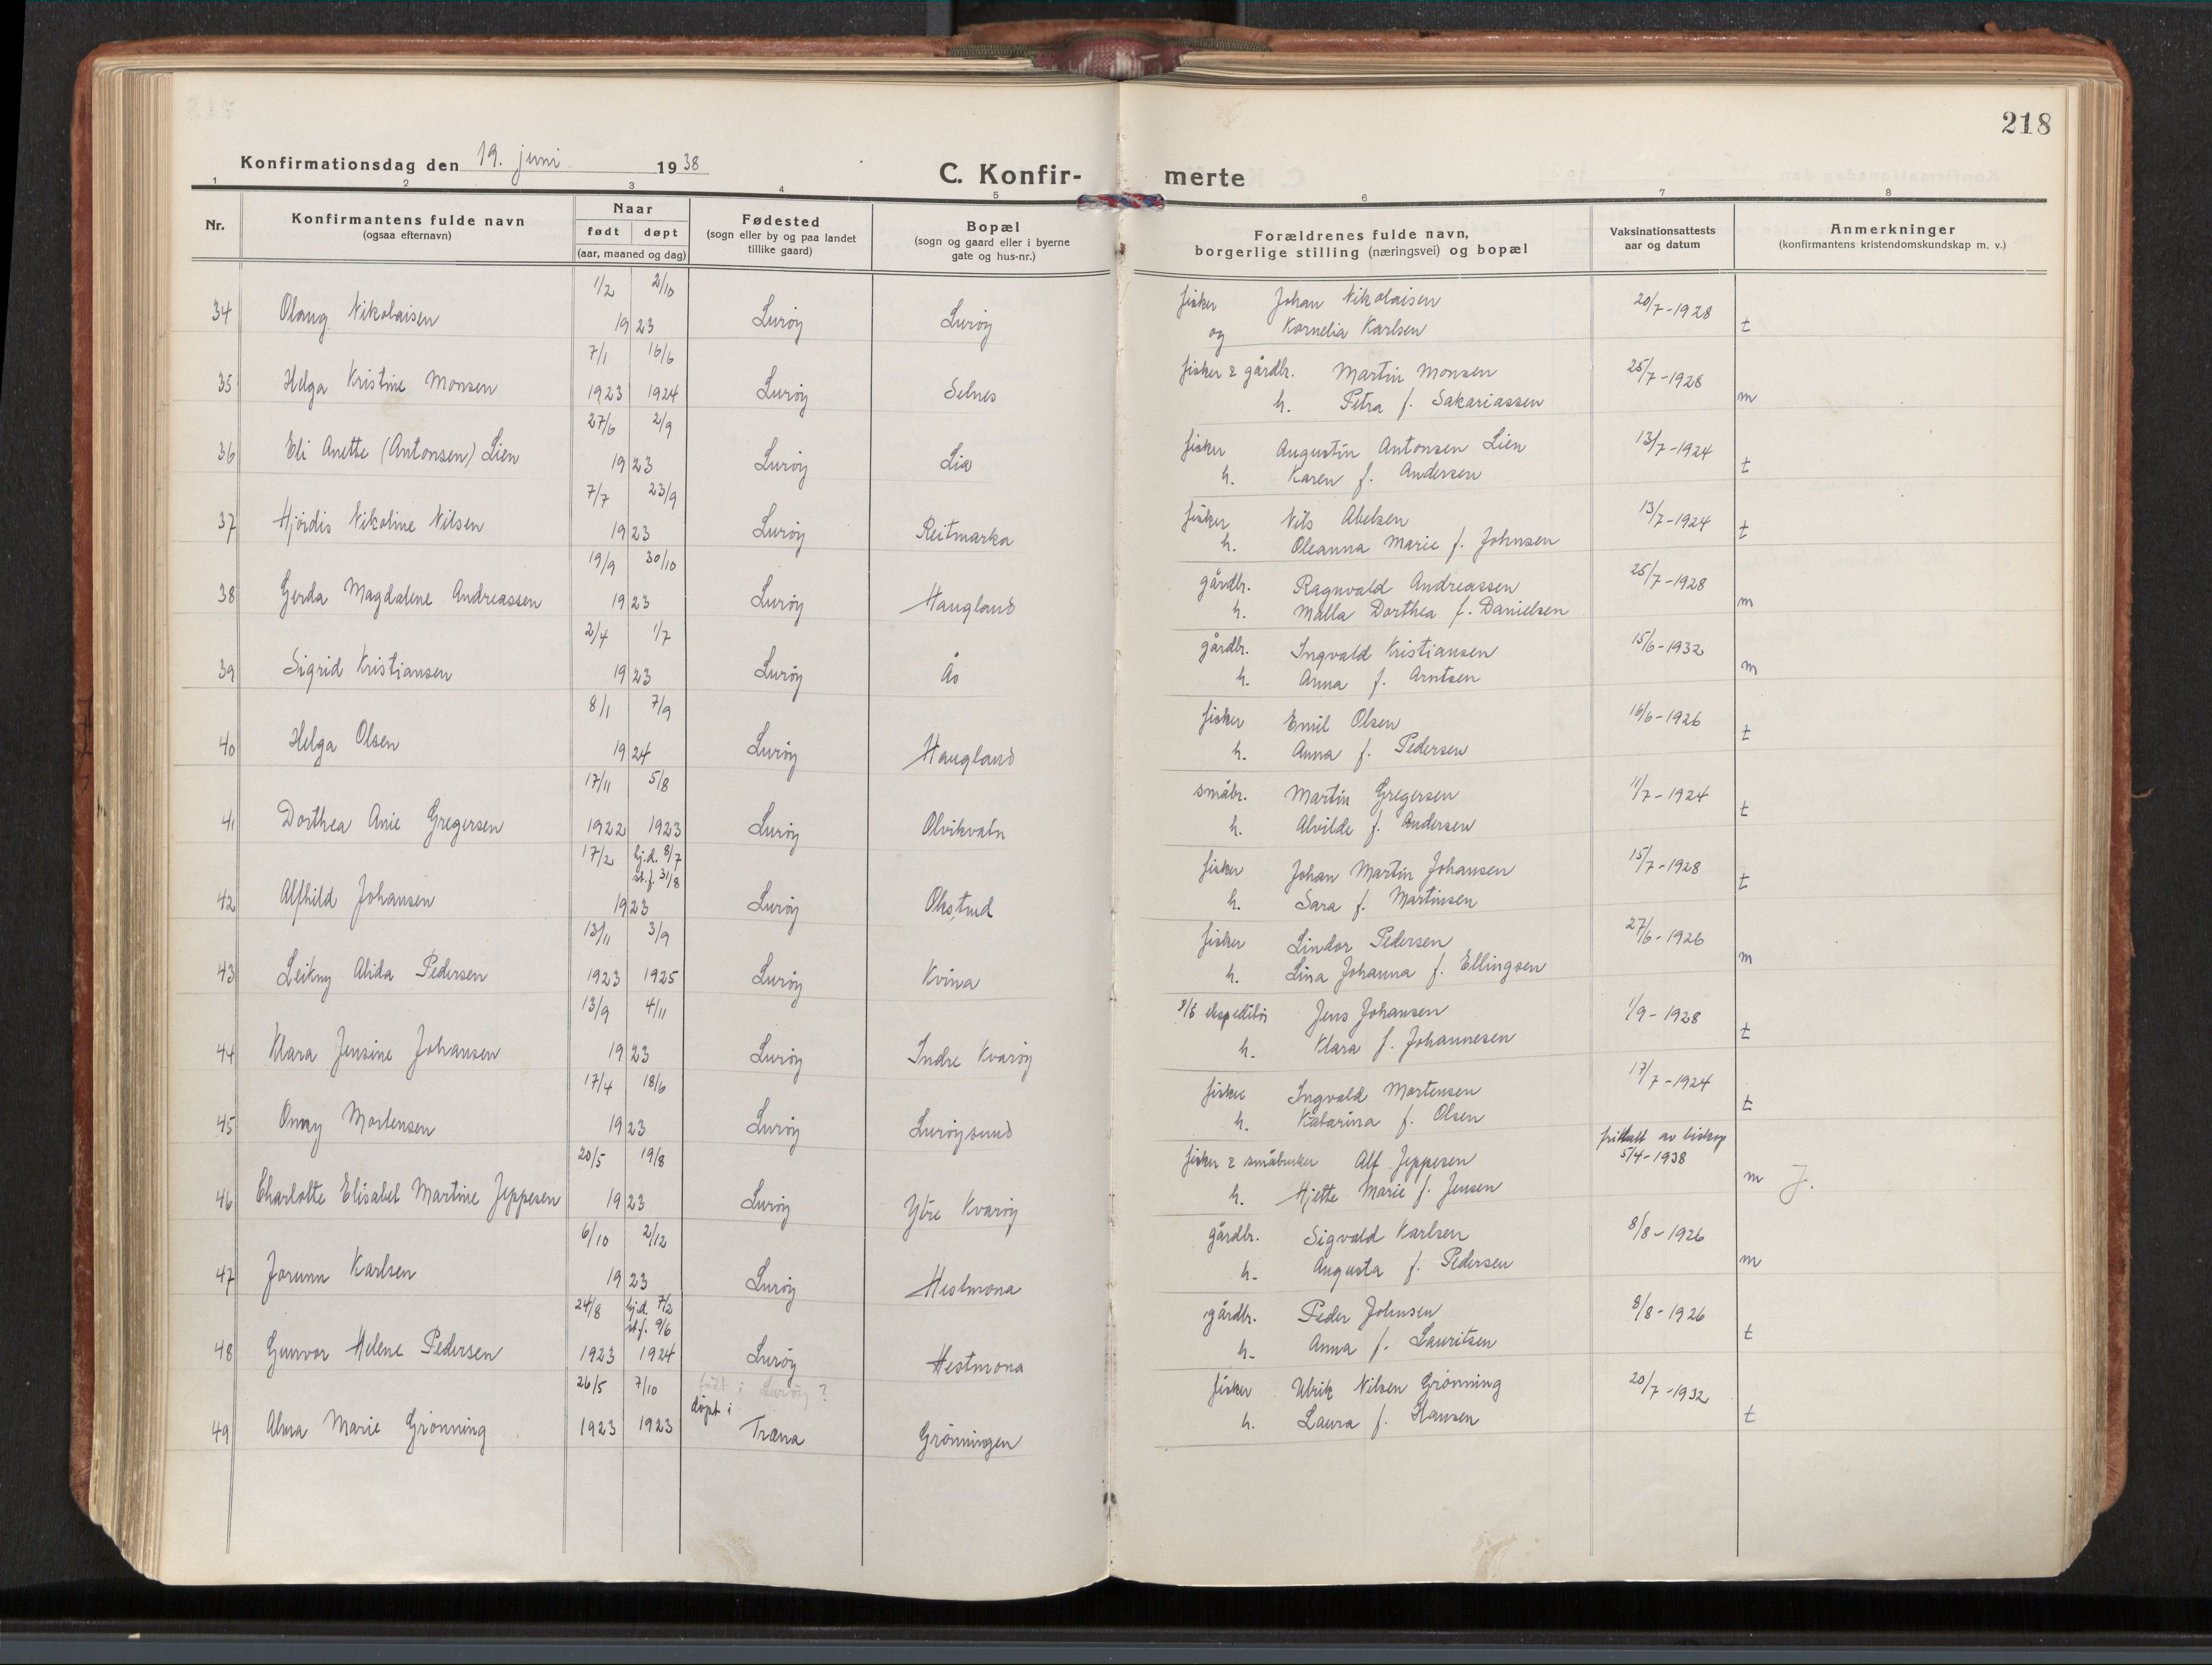 218
Konfirmationsdag den 19. juni 1938
C. Konfir- merte
1 2 3 4 5 6 7 8
Nr.
Konfirmantens fulde navn
(ogsaa efternavn)
Naar
født døpt
(aar, maaned og dag)
Fødested
(sogn eller by og paa landet
tillike gaard)
Bopæl
(sogn og gaard eller i byerne
gate og hus-nr.)
Forældrenes fulde navn,
borgerlige stilling (næringsvei) og bopæl
Vaksinationsattests
aar og datum
Anmerkninger
(konfirmantens kristendomskundskap m. v.)
1/2 2/10 fisker Johan Nikolaisen 20/7-1928
34 Olaug Nikolaisen 1923 Lurøy Lurøy og Kornelia Karlsen t
7/1 16/6 fisker & gårdbr. Martin Monsen 25/7-1928
35 Helga Kristine Monsen 1923 1924 Lurøy Selnes h. Petra f. Sakariassen m
27/6 2/9 fisker Augustin Antonsen Lien 13/7-1924
36 Eli Anette (Antonsen) Lien 1923 Lurøy Lia h. Karen f. Andersen t
7/7 23/9 fisker Nils Abelsen 13/7-1924
37 Hjördis Nikoline Nilsen 1923 Lurøy Reitmarka h. Oleanna Marie f. Johnsen t
19/9 30/10 gårdbr. Ragnvald Andreassen 25/7-1928
38 Gerda Magdalene Andreassen 1923 Lurøy Haugland h. Malla Dorthea f. Danielsen m
2/4 1/7 gårdbr. Ingvald Kristiansen 15/6-1932
39 Sigrid Kristiansen 1923 Lurøy Ås h. Anna f. Arntsen m
8/1 7/9 fisker Emil Olsen 16/6-1926
40 Helga Olsen 1924 Lurøy Haugland h. Anna f. Pedersen t
17/11 5/8 småbr. Martin Gregersen 11/7-1924
41 Dorthea Anie Gregersen 1922 1923 Lurøy Olvikvatn h. Alvilde f. Andersen t
17/2 hj.d. 8/7 st.f. 31/8 fisker Johan Martin Johansen 15/7-1928
42 Alfhild Johansen 1923 Lurøy h. Sara f. Martinsen t
13/11 3/9 fisker Lindor Pedersen 27/6-1926
43 Leikny Alida Pedersen 1923 1925 Lurøy Kvina h. Lina Johanna f. Ellingsen m
13/9 4/11 ekspeditör Jens Johansen 1/9-1928
44 Klara Jensine Johansen 1923 Lurøy Indre Kvarøy h. Klara f. Johannesen t
17/4 18/6 fisker Ingvald Mortensen 17/7-1924
45 Onny Mortensen 1923 Lurøy Lurøysund h. Katarina f. Olsen t
20/5 19/8 fisker & småbruker Alf Jeppesen fritatt av biskop 5/4-1938
46 Charlotte Elisabet Martine Jeppesen 1923 Lurøy Ytre Kvarøy h. Hjette Marie f. Jensen m J.
6/10 2/12 gårdbr. Sigvald Karlsen 8/8-1926
47 Jorunn Karlsen 1923 Lurøy Hestmona h. Augusta f. Pedersen m
24/8 hj.d. 7/2 st.f. 9/6 gårdbr. Peder Johnsen 8/8-1926
48 Gunvor Helene Pedersen 1923 1924 Lurøy Hestmona h. Anna f. Lauritsen t
26/5 7/10 født i Lurøy? fisker Ulrik Nilsen Grönning 20/7-1932
døpt i
49 Alma Marie Grönning 1923 1923 Træna Grönningen h. Laura f. Hansen t